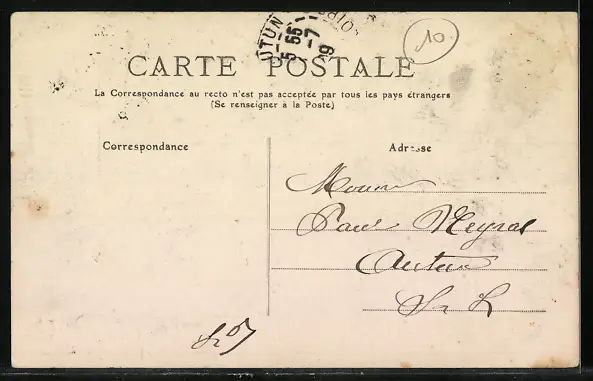 10
CARTE POSTALE
La Correspondance au recto n'est pas acceptée par tous les pays étrangers
(Se renseigner à la Poste)
Correspondance
Adresse
Paul Meyral
Autun
S. L.